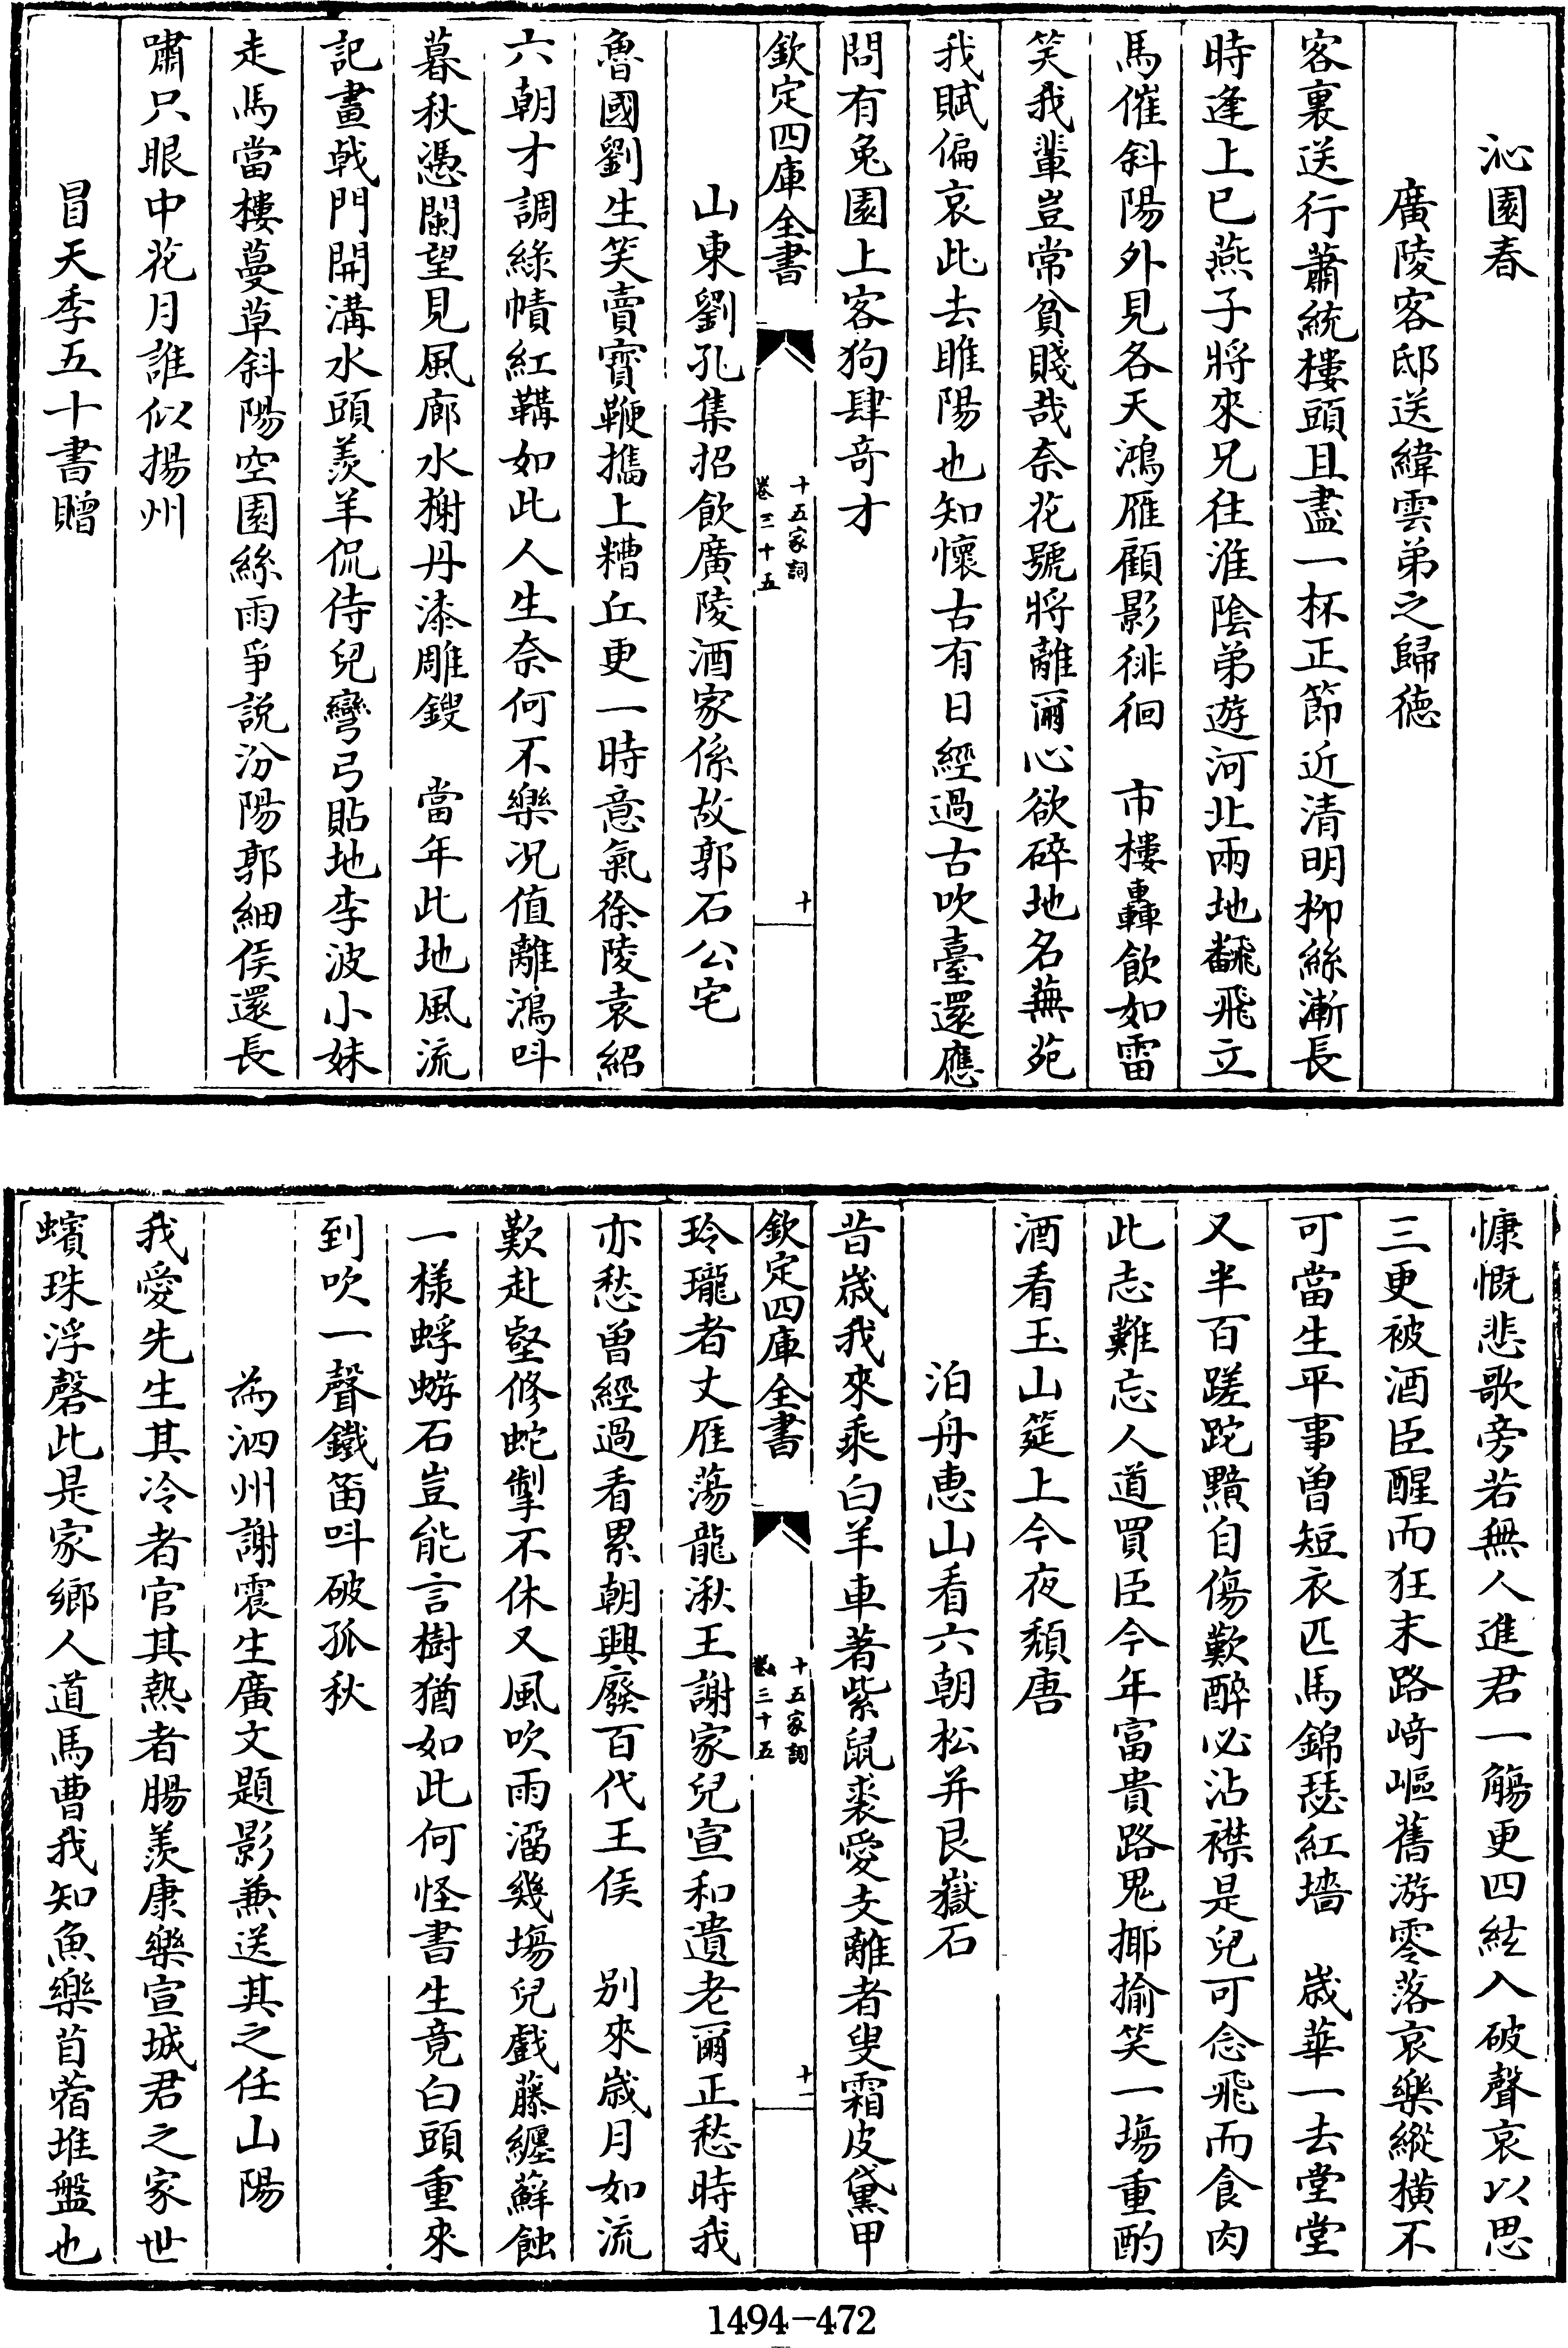 沁園春
廣陵客邸送緯雲弟之歸徳
客裏送行蕭統樓頭且盡一杯正節近清明柳絲漸長
時逢上巳燕子將來兄往淮陰弟遊河北兩地飜飛立
馬催斜陽外見各天鴻雁顧影徘徊　市樓轟飲如雷
笑我輩豈常貧賤哉奈花號將離爾心欲碎地名蕪苑
我賦偏哀此去睢陽也知懷古有日經過古吹臺還應
問有兔園上客狗肆奇才
欽定四庫全書
十五家詞
卷三十五
十
山東劉孔集招飲廣陵酒家係故郭石公宅
魯國劉生笑賣寳鞭攜上糟丘更一時意氣徐陵袁紹
六朝才調綠幘紅鞲如此人生奈何不樂况值離鴻呌
暮秋憑闌望見風廊水榭丹漆雕鎪　當年此地風流
記畫戟門開溝水頭羨羊侃侍兒彎弓貼地李波小妹
走馬當樓蔓草斜陽空園絲雨爭說汾陽郭細侯還長
嘯只眼中花月誰似揚州
冒天季五十書贈
慷慨悲歌旁若無人進君一觴更四絃入破聲哀以思
三更被酒臣醒而狂末路崎嶇舊游零落哀樂縱橫不
可當生平事曽短衣匹馬錦瑟紅墻　嵗華一去堂堂
又半百蹉跎黯自傷歎醉必沾襟是兒可念飛而食肉
此志難忘人道買臣今年富貴路鬼揶揄笑一塲重酌
酒看玉山筵上今夜頽唐
泊舟惠山看六朝松并艮嶽石
昔嵗我來乘白羊車著紫鼠裘愛支離者叟霜皮黛甲
欽定四庫全書
十五家詞
卷三十五
十一
玲瓏者丈雁蕩龍湫王謝家兒宣和遺老爾正愁時我
亦愁曽經過看累朝興廢百代王侯　别來嵗月如流
歎赴壑修蛇掣不休又風吹雨溜幾塲兒戲藤纏蘚蝕
一樣蜉蝣石豈能言樹猶如此何怪書生竟白頭重來
到吹一聲鐵笛呌破孤秋
為泗州謝震生廣文題影兼送其之任山陽
我愛先生其冷者官其熱者腸羨康樂宣城君之家世
蠙珠浮磬此是家鄉人道馬曹我知魚樂苜蓿堆盤也
1494-472